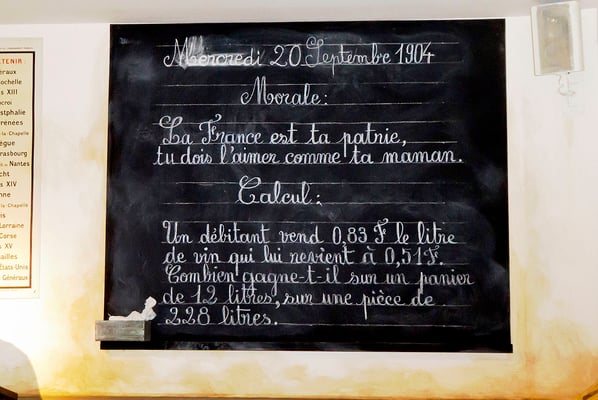 Mercredi 20 Septembre 1904
Morale:
La France est ta patrie,
tu dois l'aimer comme ta maman.
Calcul:
Un débitant vend 0,83 F le litre
de vin qui lui revient à 0,51 F.
Combien gagne-t-il sur un panier
de 12 litres, sur une pièce de
228 litres.
TENIR:
XIII
-la-Chapelle
Nantes
XIV
-la-Chapelle
Lorraine
Corse
XV
États-Unis
Généraux